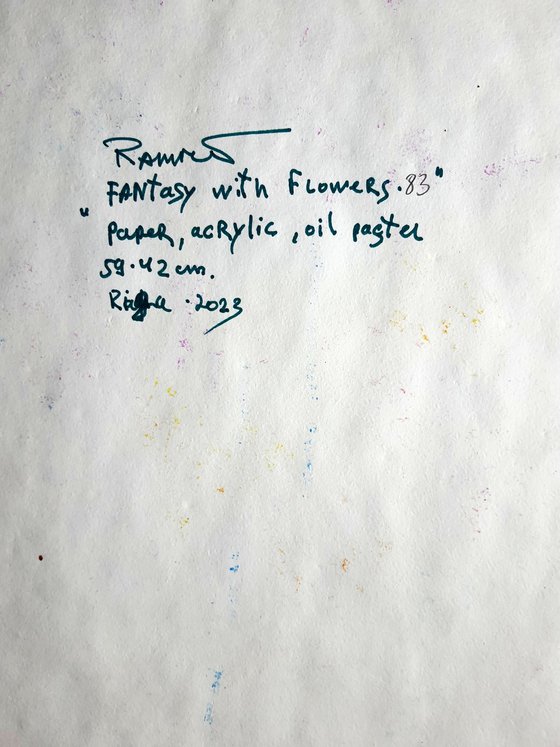 Fantasy with Flowers.83"
" Paper, acrylic, oil pastel
59.42 cm.
Riga .2023